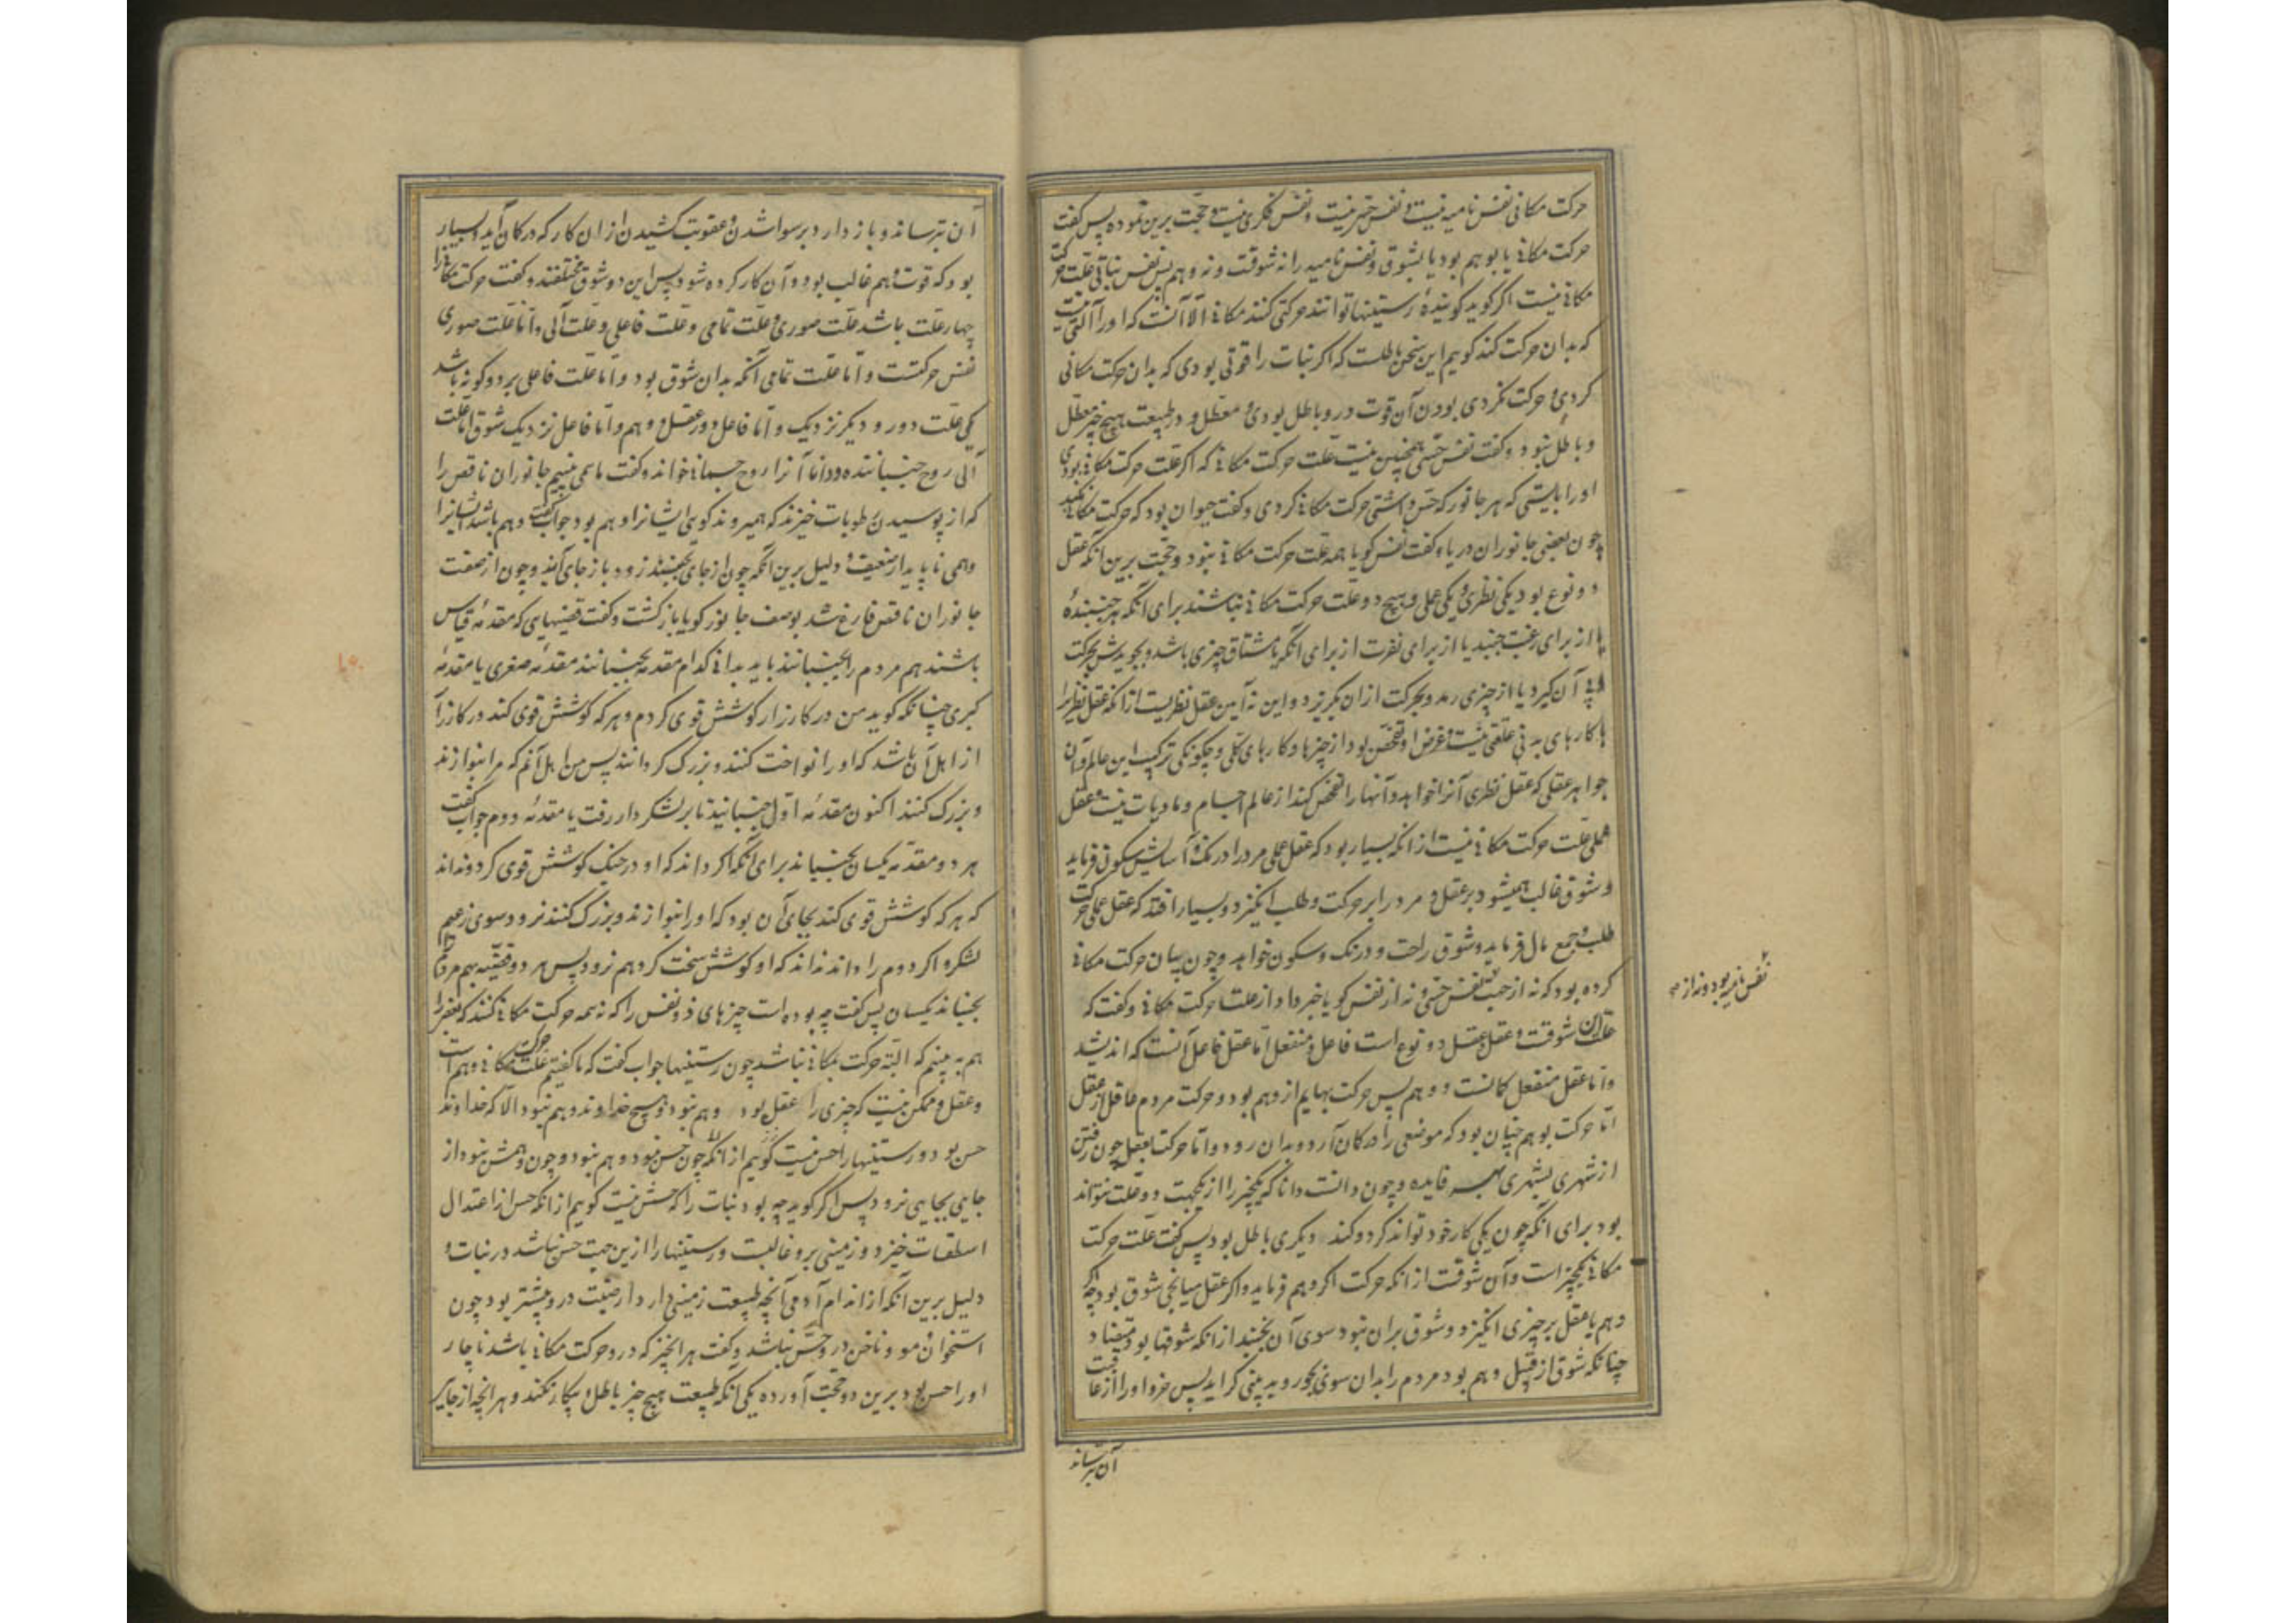 حرکت مکانی نفس نامیه نیست و نفس حس نیست و نفس فکری نیست و حجت برین نموده پس گفت
حرکت مکانی یا بوهم بود یا بشوق و نفس نامیه را نه شوقست و نه وهم پس نفس نباتی علت حرکت
مکانی نیست اگر گوید گوینده رستنیها توانند حرکتی کنند مکانی الا آنست که او را آلتی نیست
که بدان حرکت کند گوییم این سخن باطلست که اگر نبات را قوتی بودی که بدان حرکت مکانی
کردی و حرکت نکردی بودن آن قوت در و باطل بودی و معطل و در طبیعت هیچ چیز معطل
و باطل نبود و گفت نفس حسی همچنین نیست علت حرکت مکانی که اگر علت حرکت مکانی بودی
او را بایستی که هر جانور که حس داشتی حرکت مکانی کردی و گفت حیوان بود که حرکت مکانی نکند
چون بعضی جانوران دریا و گفت نفس گویا همه علت حرکت مکانی نبود و حجت برین آنکه عقل
دو نوع بود یکی نظری و یکی عملی و هیچ دو علت حرکت مکانی نباشند برای آنکه هر جنبنده
یا از برای رغبت جنبد یا از برای نفرت از برای آنکه یا مشتاق چیزی باشد و بجویدش بحرکت
تا آن گیرد یا از چیزی رمد و بحرکت از ان بگریزد و این نه آیین عقل نظریست از آنکه عقل نظری را
با کارهای بدنی علقتی نیست و غرض او تفحص بود از چیزها و کارهای کلی و چگونگی ترکیب این عالم و آن
جواهر عقلی که عقل نظری آنرا خواهد و آنها را تفحص کند از عالم اجسام و مادیات نیست و عقل
عملی علت حرکت مکانی نیست از آنکه بسیار بود که عقل عملی مرد را درنگ و آسایش و سکون فرماید
و شوق غالب همیشود بر عقل و مرد را بر حرکت و طلب انگیزد و بسیار افتد که عقل عملی حرکت
طلب و جمع مال فرماید و شوق راحت و درنگ و سکون خواهد و چون بیان حرکت مکانی
کرده بود که نه از جهت نفس حسی و نه از نفس گویا خبر داد از علت حرکت مکانی و گفت که
علت آن شوقست و عقل و عقل دو نوع است فاعل و منفعل اما عقل فاعل آنست که اندیشد
و اما عقل منفعل گمانست و وهم پس حرکت بهایم از وهم بود و حرکت مردم عاقل از عقل
اما حرکت بوهم چنان بود که موضعی را در گمان آرد و بدان رود و اما حرکت بعقل چون رفتن
از شهری بشهری بهر فایده و چون دانست دانا که یکچیز را از یکجهت دو علت نتواند
بود برای آنکه چون یکی کار خود تواند کرد و کند دیگری باطل بود پس گفت علت حرکت
مکانی یکچیز است و آن شوقست از آنکه حرکت اگر وهم فرماید و اگر عقل میانجی شوق بود چه اگر
وهم یا عقل بر چیزی انگیزد و شوق بران نبود سوی آن نجنبد از آنکه شوقها بود متضاد
چنانکه شوق از قبل وهم بود مردم را بدان سوی و گراید پس خرد او را از عاقبت
آن بترساند
نفس نامیه بود و نه از
آن بترساند و باز دارد برسوا شدن و عقوبت کشیدن از ان کار که در گمان آید و بسیار
بود که قوت وهم غالب بود و آن کار کرده شود پس این دو شوق مختلفند و گفت حرکت مکانی را
چهار علت باشد علت صوری و علت تمامی و علت فاعلی و علت آلی و اما علت صوری
نفس حرکتست و اما علت تمامی آنکه بدان شوق بود و اما علت فاعلی بر دو گونه باشد
یکی علت دور و دیگر نزدیک و اما فاعل دور عقل و وهم و اما فاعل نزدیک شوق اما علت
آلی روح جنباننده و دانا آنرا روح جسمانی خواند و گفت ما می بینیم جانوران ناقص را
که از پوسیدن رطوبات خیزند که همیروند گویی ایشانرا وهم بود جواب گفت وهم باشد ایشانرا
وهمی ناپایدار ضعیف و دلیل برین آنکه چون از جای بجنبند زود باز جای آیند و چون از صفت
جانوران ناقص فارغ شد بوصف جانور گویا باز گشت و گفت قضیهایی که مقدمه قیاس
باشند هم مردم را بجنبانند باید بدانی کدام مقدمه بجنبانند مقدمه صغری یا مقدمه
کبری چنانکه گوید من در کارزار کوشش قوی کردم و هر که کوشش قوی کند در کارزار
از اهل آن باشد که او را نواخت کنند و بزرگ گردانند پس من اهل آنم که مرا بنوازند
و بزرگ کنند اکنون مقدمه اولی جنبانید تا بر لشکردار رفت یا مقدمه دوم جواب گفت
هر دو مقدمه یکسان بجنبانند برای آنکه اگر داند که او در جنگ کوشش قوی کرد و نداند
که هر که کوشش قوی کند بجای آن بود که او را بنوازند و بزرگ کنند نرود سوی زعیم
لشکر و اگر دوم را داند نداند که او کوشش سخت کرد هم نرود پس هر دو قضیه هم مردم را
بجنباند یکسان پس گفت چه بوده است چیزهای ذو نفس را که نه همه حرکت مکانی کنند که بعضی را
هم به بینم که البته حرکت مکانی نباشد چون رستنیها جواب گفت که ما گفتیم علت حرکت مکانی وهم است
و عقل و ممکن نیست که چیزی را عقل بود و وهم نبود و هیچ خداوند وهم نبود الا که خداوند
حس بود و رستنیها را حس نیست گوییم از آنکه چون حس نبود وهم نبود و چون وهمش نبود از
جایی بجایی نرود پس اگر گوید چه بود نبات را که حسش نیست گوییم از آنکه حس از اعتدال
اسطقسات خیزد و زمینی برو غالبست و رستنیها را ازین جهت حس نباشد در نبات و
دلیل برین آنکه از اندام آدمی آنچه طبیعت زمینی دارد ارضیت درو بیشتر بود چون
استخوان و مو و ناخن در و حس نباشد و گفت هر آنچیز که درو حرکت مکانی باشد ناچار
او را حس بود برین دو حجت آورده یکی آنکه طبیعت هیچ چیز باطل و بیکار نکند و هر آنچه از جای